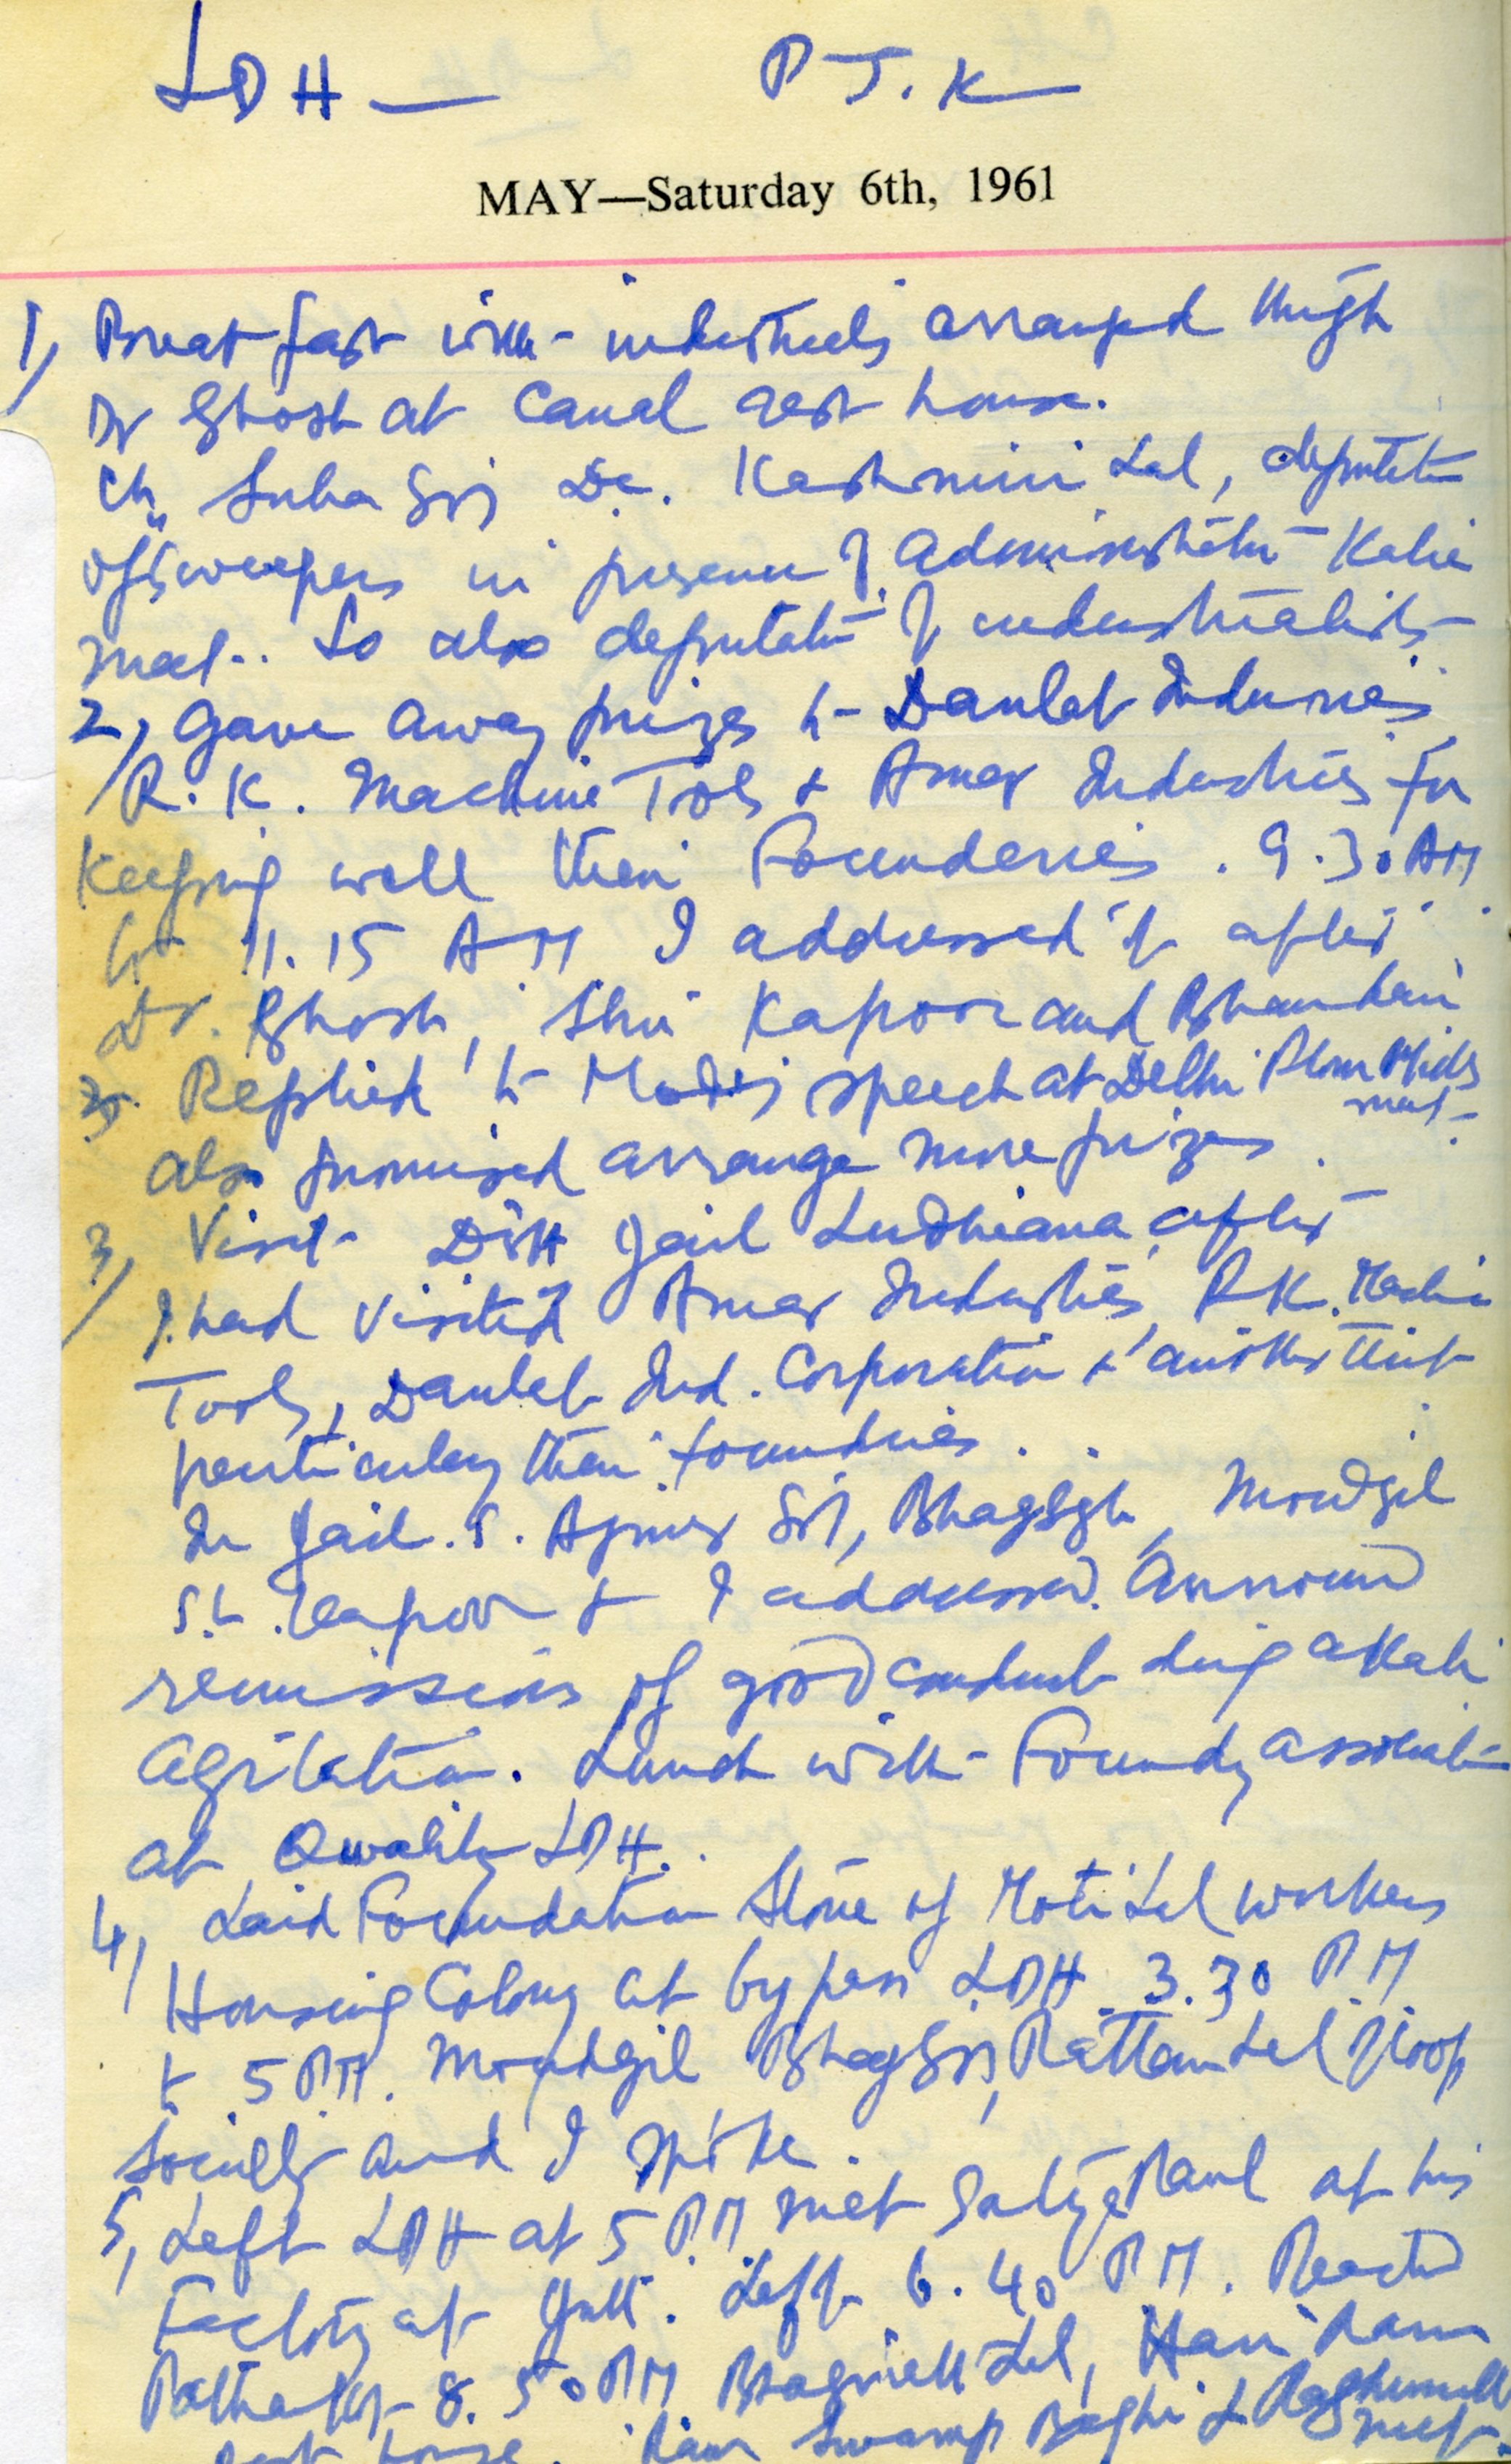 LDH — P T. K
MAY—Saturday 6th, 1961
1, Breakfast with industrials arranged through
Dr Ghosh at Canal rest house.
Ch. Sunder Sgh D.C. Kashmiri Lal, deputation
of sweepers in presence of Administrator
Mal.. So also deputation of industrialists
2, Gave away prizes to Daulat Industries
R. K. Machine Tools & Amar Industries for
Keeping well their Founderies. 9.30 AM
to 11.15 AM I addressed it after
Dr. Ghosh, Shri Kapoor and Bhandari
Replied to speech at Delhi
also promised arrange more prizes.
3, Visit Distt Jail Ludhiana after
I had visited Amar Industries, R.K. Machine
Tools, Daulat Ind. Corporation & another Unit
particularly their foundries.
In Jail. S. Ajmer Sgh, Bhag Sgh, Moudgil
S.L. Kapoor & I addressed. Announced
remissions of good conduct during Akali
agitation. Lunch with Foundry association
at Quality LDH.
4, Laid Foundation Stone of Moti Lal workers
Housing Colony at bypass LDH 3.30 P.M
to 5 P.M. Moudgil Bhag Sgh, Rattan Lal of Coop
Society and I spoke.
5, Left LDH at 5 P.M met Satya Paul at his
Factory at Jull. Left 6.40 P.M. Reached
Pathankot 8.50 P.M Bhagwat Lal, Hari Ram
rest house. Ram Swarup Baghi & met.